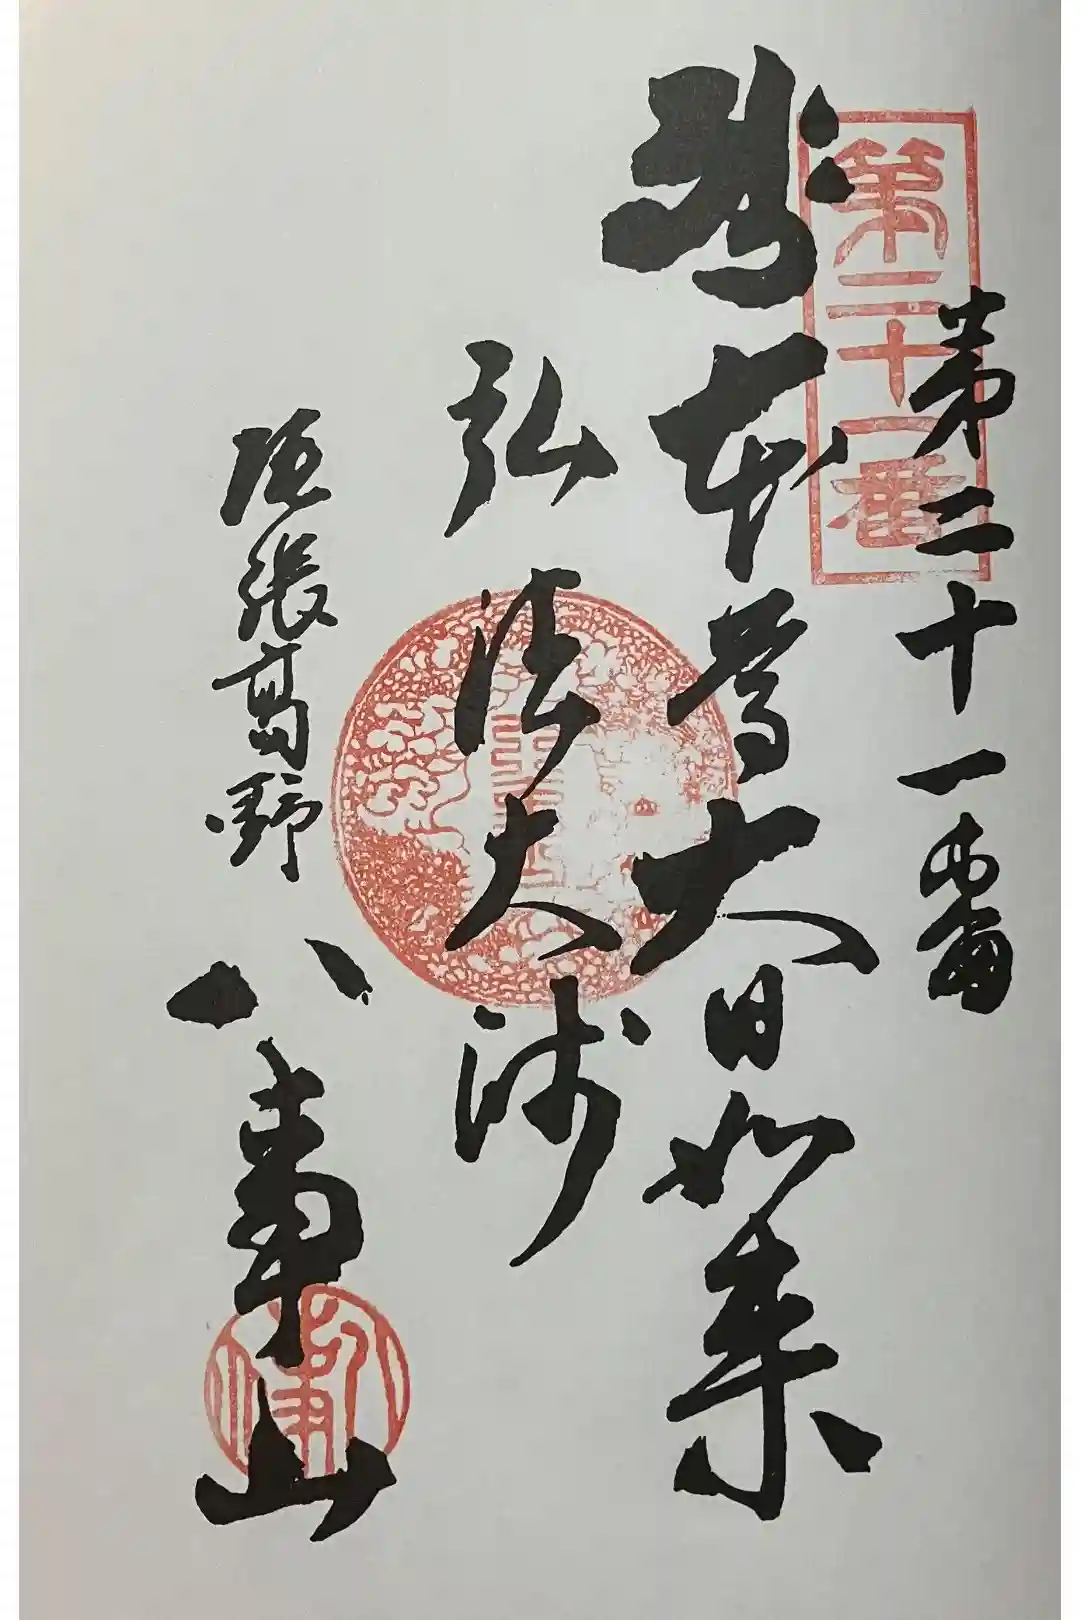 第二十一番
第二十一番
本尊大日如来
弘法大師
尾張高野
八事山
八事山